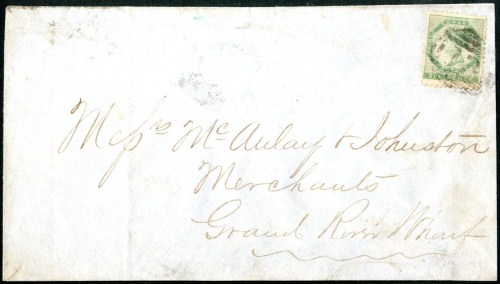 Messrs McAulay & Johnston
Merchants
Grand River Wharf